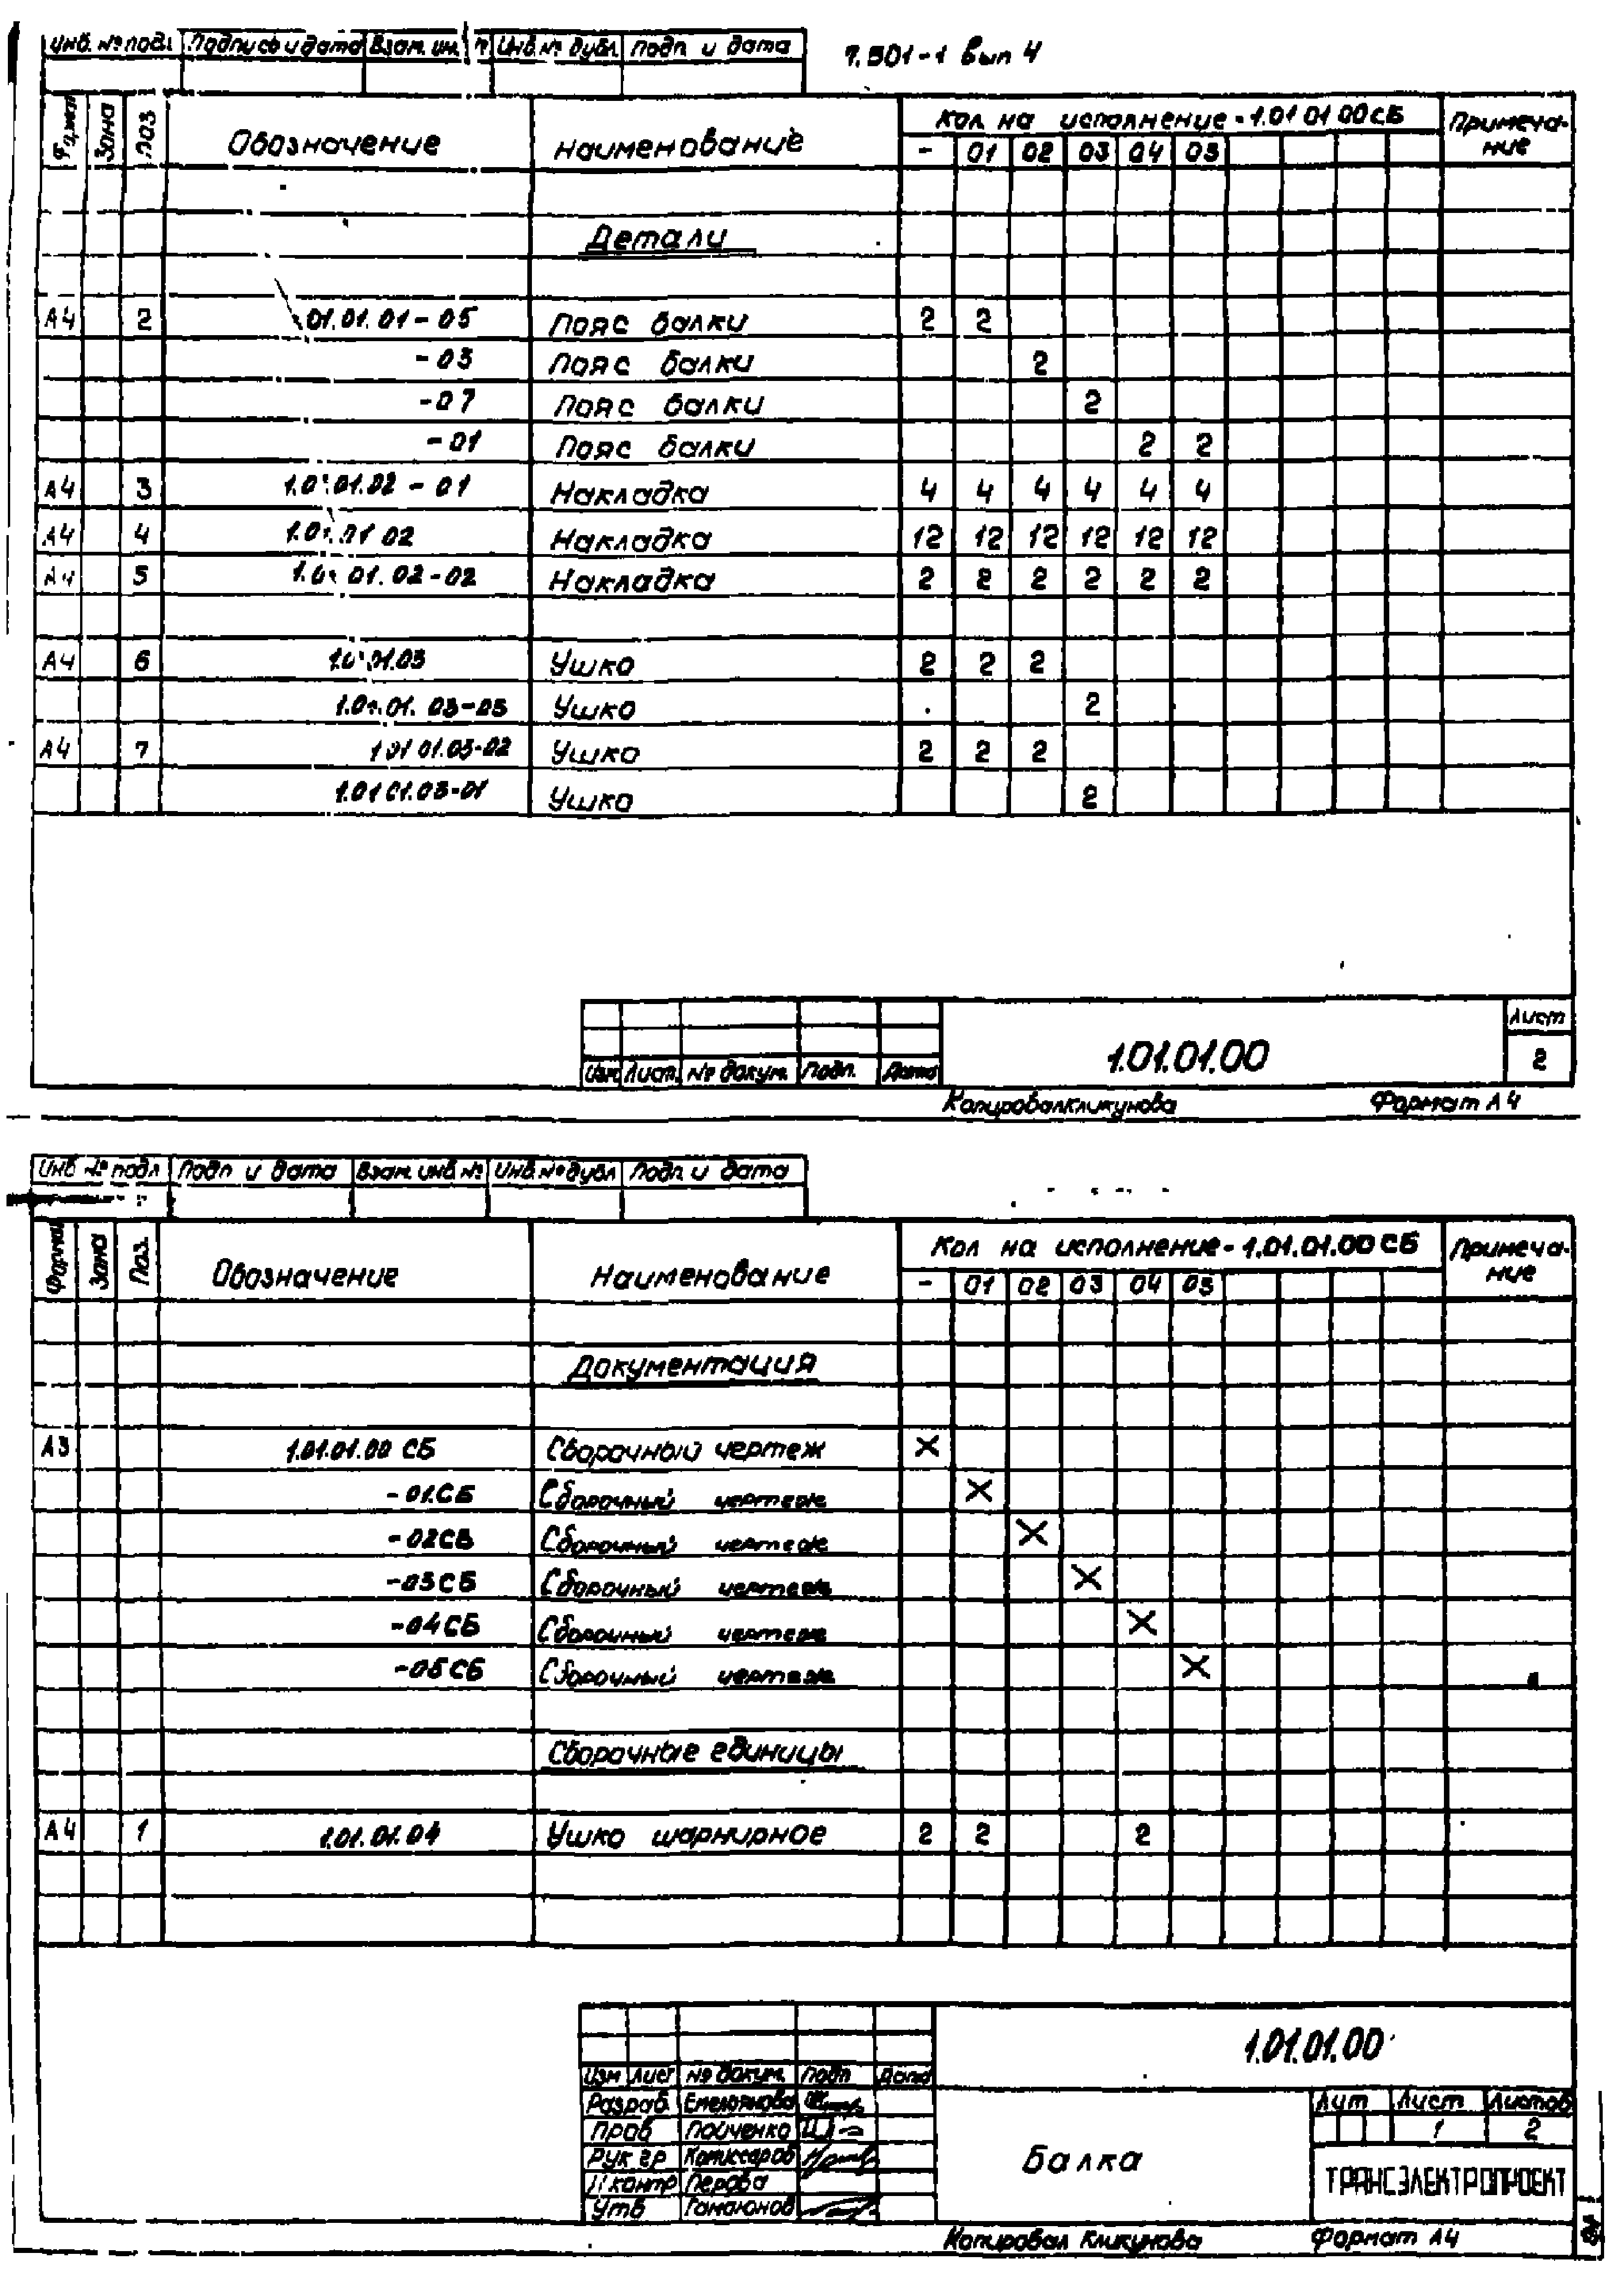 Инв. № подл Подпись и дата Взам. ин. № Инв № дубл Подп. и дата
7.501-1 вып 4
Формат Зона Поз Обозначение Наименование Кол на исполнение - 1.01 01 00 СБ Примеча-ние
- 01 02 03 04 05
Детали
А4 2 01.01.01-05 Пояс балки 2 2
-03 Пояс балки 2
-07 Пояс балки 2
-01 Пояс балки 2 2
А4 3 1.01.01.02-01 Накладка 4 4 4 4 4 4
А4 4 1.01.01 02 Накладка 12 12 12 12 12 12
А4 5 1.01 01.02-02 Накладка 2 2 2 2 2 2
А4 6 1.01.01.03 Ушко 2 2 2
1.01.01.03-03 Ушко 2
А4 7 1 01 01.03-02 Ушко 2 2 2
1.01 01.03-01 Ушко 2
1.01.01.00
Лист
2
Изм Лист № докум. Подп. Дата
Копировал Кликунова Формат А4
Инв № подл Подп и дата Взам. инв № Инв № дубл Подп. и дата
Формат Зона Поз. Обозначение Наименование Кол на исполнение - 1.01.01.00 СБ Примеча-ние
- 01 02 03 04 05
Документация
А3 1.01.01.00 СБ Сборочный чертеж X
-01.СБ Сборочный чертеж X
-02СБ Сборочный чертеж X
-03СБ Сборочный чертеж X
-04СБ Сборочный чертеж X
-05СБ Сборочный чертеж X
Сборочные единицы
А4 1 1.01.01.04 Ушко шарнирное 2 2 2
1.01.01.00
Изм Лист № докум. Подп Дата
Разраб. Емельянова
Пров Пойченко
Рук гр Комиссаров
Н контр Перова
Утв Гамаюнов
Балка
Лит Лист Листов
1 2
ТРАНСЭЛЕКТРОПРОЕКТ
Копировал Кликунова Формат А4